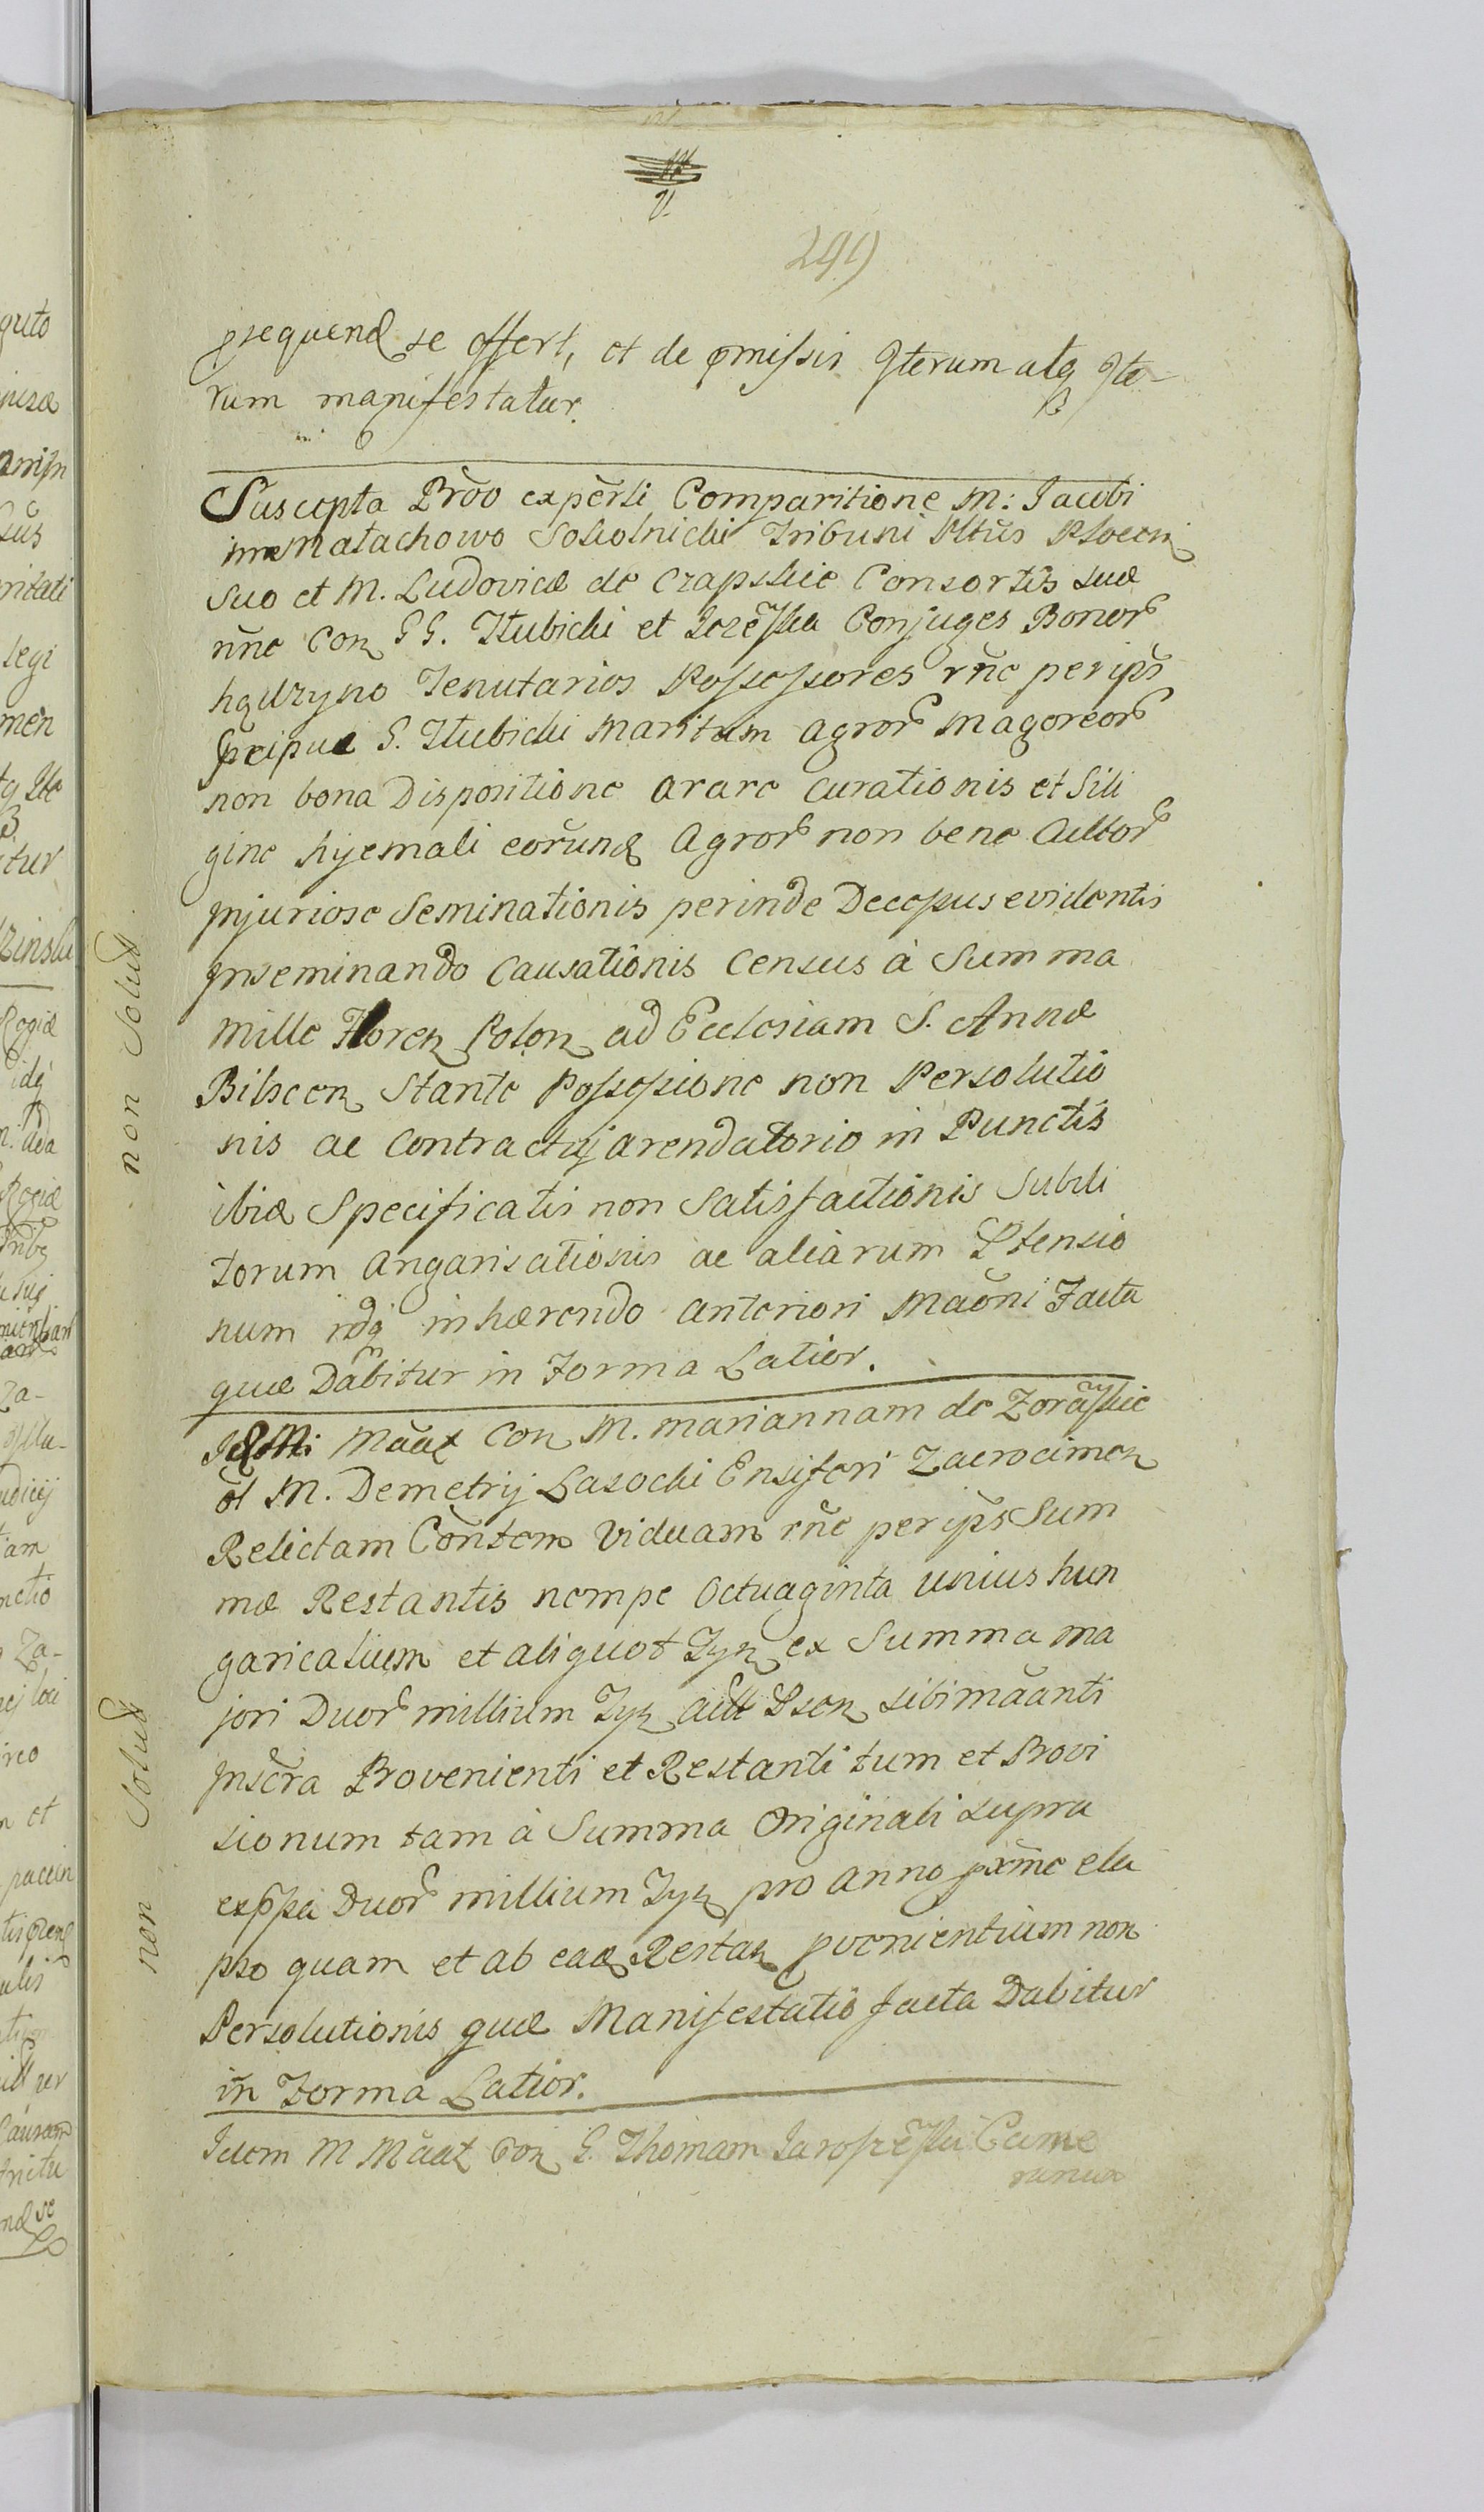 291
prsequend se offert, et de pmissis Iterum atq Ite-
rum manifestatur.
Suscepta Proo experti Comparitione M: Jacobi
in Małachowo Sokolnicki Tribuni Pltus Plocen
Suo et M. Ludovicæ de Czapskie Consortis suæ
nne Con GG. Kłubicki et Jezeska Conjuges Bonor
Tenutarios Possessores rne per ips
pcipue G. Kłubicki Maritum agror magoreor
non bona Dispositione arare curationis et Sili
gine hyemali eorund Agror non bene Cultor
Injuriose Seminationis perinde Decessus evidentis
Inseminando Causationis Census à Summa
Mille Floren Polon ad Ecclesiam S. Annæ
Bilscen Stante Possessione non Persolutio
nis ac Contractuj arendatorio in Punctis
ibid Specificatis non Satisfactionis Subdi
torum Angarisationis ac aliarum Ptensio
num idq inhærendo anteriori Maoni Facta
quæ Dabitur in Forma Latior.
Idem Maat Con M. Mariannam de Zoraskie
ol M. Demetrij Lasocki Ensiferi Zacrocimen
Relictam Contem Viduam rne per ips Sum
mæ Restantis nempe Octuaginta unius hun
garicalium et aliquot Tyn ex Summa ma
jori Duor millium Tyn Psen sibi maanti
Inscra Provenienti et Restanti tum et Provi
sionum tam à Summa Originali supra
exppa Duor millium Tyn pro anno pxme ela
pso quam et ab ead Restan pvenientium non
Persolutionis quæ Manifestatio facta Dabitur
in Forma Latior.
Idem M Maat Con G. Thomam Came
rariu
non Solut
non Solut